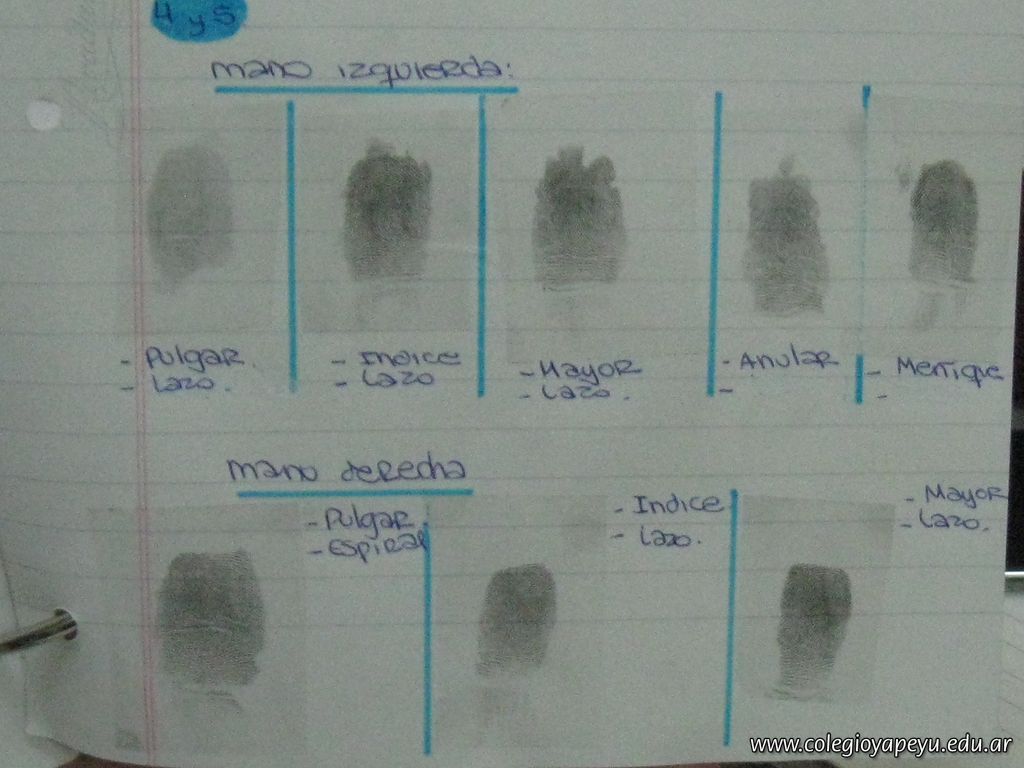 4 y 5
mano izquierda:
- Pulgar.
- Lazo.
- Indice
- Lazo
- Mayor
- Lazo.
- Anular
-
- Meñique
-
mano derecha
- Pulgar.
- Espiral
- Indice
- Lazo.
- Mayor
- Lazo.
www.colegioyapeyu.edu.ar